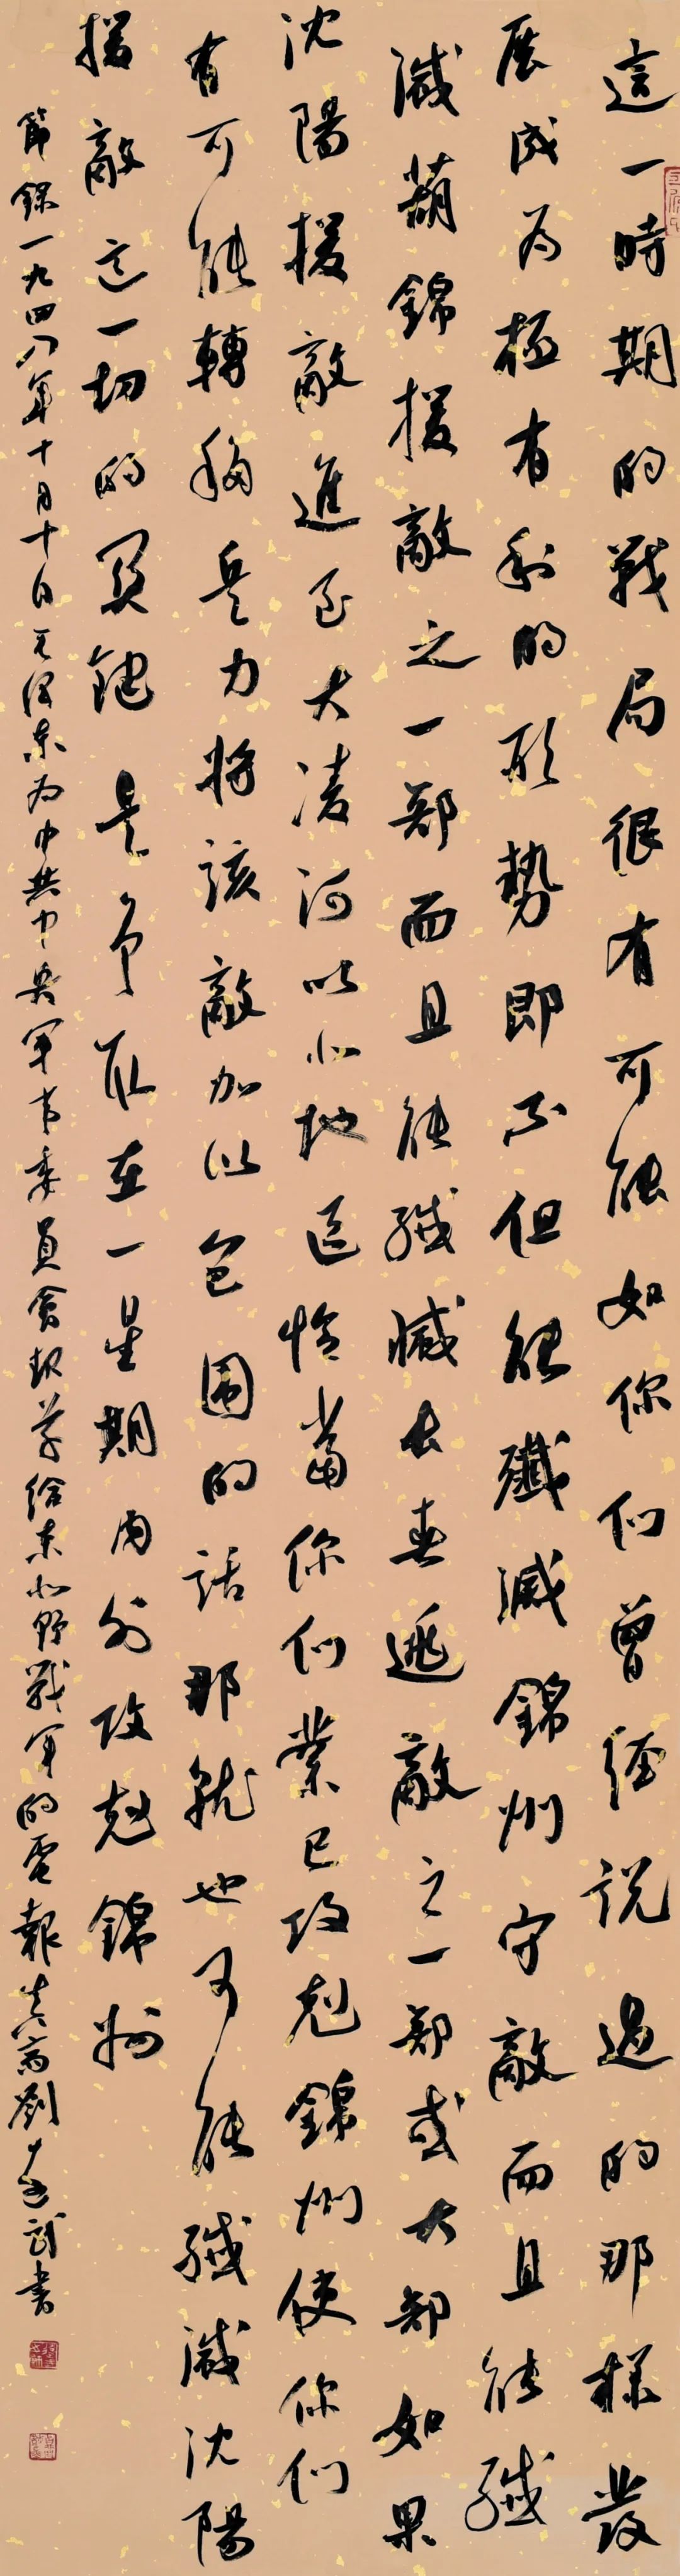 這一時期的戰局很有可能如你们曾經説過的那樣發
展成为極有利的形勢即不但能殲滅錦州守敵而且能殲
滅葫錦援敵之一部而且能殲滅長春逃敵之一部或大部如果
沈陽援敵進至大凌河以北地區恰當你们業已攻剋錦州使你们
有可能轉移兵力將該敵加以包围的話那就也可能殲滅沈陽
援敵這一切的関鍵是争取在一星期内外攻克錦州
節録一九四八年十月十日毛澤東为中共中央軍事委員會起草给東北野戰軍的電報 劉武書